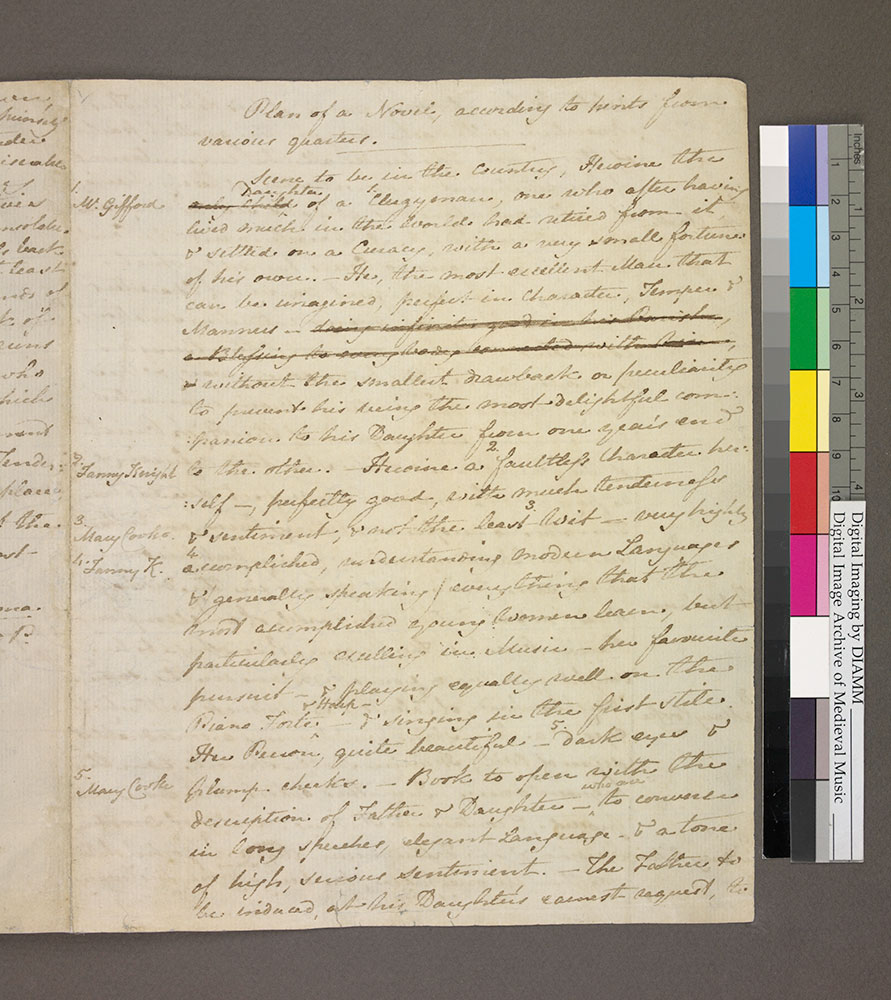 Plan of a Novel, according to hints from
various quarters.
Scene to be in the Country, Heroine the
1.
Mr. Gifford
Daughter
only Child of a 1. Clergyman, one who after having
lived much in the World had retired from it,
& settled on a Curacy, with a very small fortune
of his own. — He, the most excellent Man that
can be imagined, perfect in Character, Temper &
Manners — doing infinite good in his Parish,
a Blessing to everybody connected with him,
& without the smallest drawback or peculiarity
to prevent his being the most delightful com-
:panion to his Daughter from one year's end
2.
Fanny Knight
to the other. — Heroine a 2. faultless Character her:
:self —, perfectly good, with much tenderness
3.
Mary Cooke
& sentiment, & not the least 3. Wit — very highly
4.
Fanny K.
4. accomplished, understanding modern Languages
& generally speaking) everything that the
most accomplished young Women learn, but
particularly excelling in Music — her favourite
pursuit — & playing equally well on the
& Harp —
Piano Forte — & singing in the first stile.
Her Person, quite beautiful — 5. dark eyes &
5.
Mary Cooke
plump cheeks. — Book to open with the
description of Father & Daughter — who are to converse
in long speeches, elegant Language — & a tone
of high, serious sentiment. — The Father to
be induced, at his Daughter's earnest request, to
least
who
which
Tender:
place
Inches
1
2
3
4
1
2
3
4
5
6
7
8
9
10
Digital Imaging by DIAMM
Digital Image Archive of Medieval Music